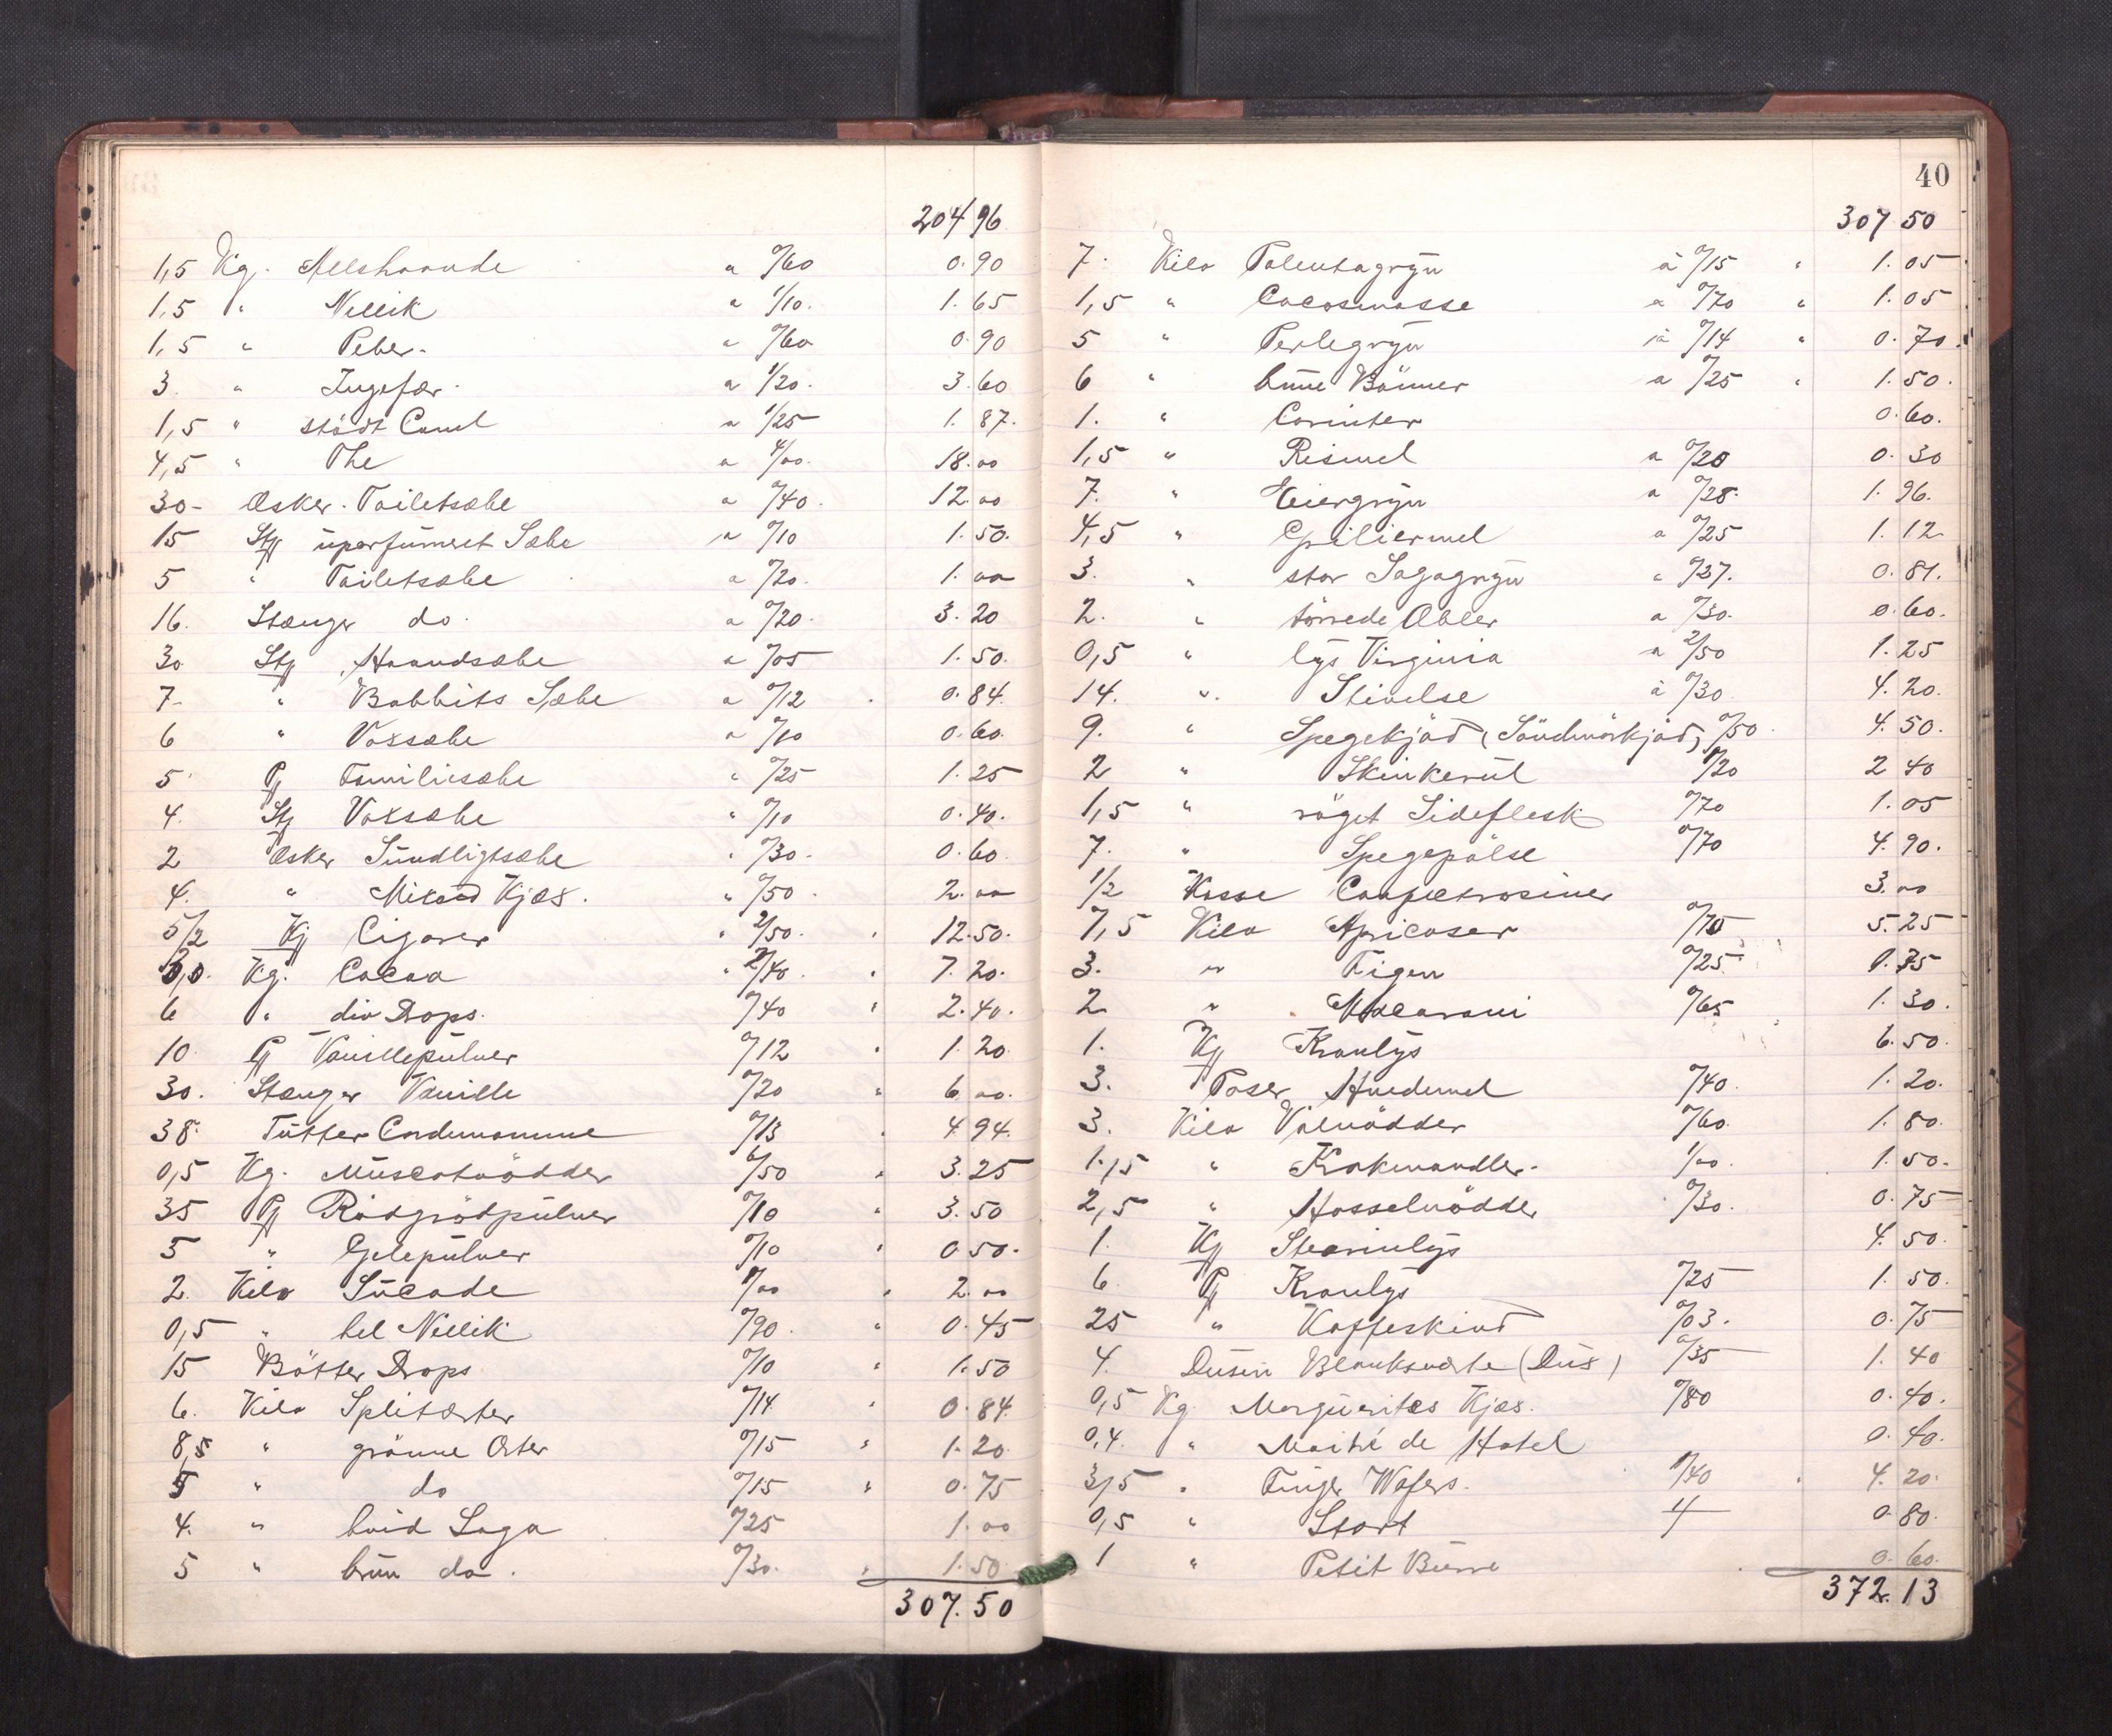 204 96
1,5 Kg. Allehaande a 0/60 0.90
1,5 " Nellik a 1/10. 1.65
1,5 " Peber. " 0/60 0.90
3. " Ingefær. a 1/20. 3.60
1,5 " stödt Canel a 1/25 1.87.
4,5 " The a 4/00. 18.00
30- Æsker. Toiletsæbe a 0/40. 12.00
15 Stk uparfumeret Sæbe a 0/10 1.50.
5 " Toiletsæbe a 0/20. 1.00
16. Stænger do. a 0/20. 3.20
30 Stk Haandsæbe a 0/05 1.50.
7- " Babbits Sæbe a 0/12 0.84.
6 " Voxsæbe a 0/10 0.60.
5 Pk Familiesæbe " 0/25 1.25
4. Stk Voxsæbe " 0/10 0.40.
2 Æsker Sunligtsæbe " 0/30. 0.60
4. " Mixed Kjæx. " 0/50. 2.00
5/2 Ks Cigarer " 2/50. " 12.50.
3,0. Kg. Cacao " 2/40. " 7.20.
6 " div Drops. 0/40 " 2.40.
10. Pk Vanillepulver 0/12 " 1.20.
30. Stænger Vanille 0/20 " 6.00.
38. Tutter Cardemomme 0/13 " 4.94.
0,5 Kg. Muscatnödder 6/50 " 3.25
35 Pk Rödgrödpulver 0/10 " 3.50
5 " Gelepulver 0/10 " 0.50.
2. Kilo Sucade 1/00 " 2.00
0,5 " hel Nellik 0/90. " 0.45
15 Bötter Drops 0/10 " 1.50
6. Kilo Spliterter 0/14 " 0.84.
8,5 " grönne Erter 0/15 " 1.20.
5 " do 0/15 " 0.75
4. " hvid Sago 0/25 1.00
5 " brun do. 0/30. " 1.50.
307.50
40
307 50
7. Kilo Polentagryn à 0/15 " 1.05
1,5 " Cocosmasse a 0/70 " 1.05
5 " Perlegryn à 0/14 " 0.70.
6 " brune Bönner a 0/25 " 1.50.
1. " Corinter 0.60.
1,5 " Rismel a 0/20 0.30
7. " Eiergryn a 0/28. 1.96.
4,5 " mel a 0/25 1.12.
3. " stor Sagogryn " 0/27. 0.81.
2. " törrede Æbler a 0/30. 0.60.
0,5 " lys Virginia a 2/50 1.25
14. " Stivelse à 0/30. 4.20.
9. " Spegekjöd (Söndmörkjöd) 0/50. 4.50.
2 " Skinkerul 1/20 2 40
1,5 " röget Sideflesk 0/70 1.05
7. " Spegepölse 0/70 4.90.
1/2 Kasse Caapetrosiner 3.00
7,5 Kilo Apricoser 0/70 5.25
3. " Figen 0/25 0.75
2 " Macaroni 0/65 1.30.
1. Ks Kronlys 6.50.
3. Poser Huedemel 0/40. 1.20.
3. Kilo Valnödder 0/60. 1.80.
1,5 " Krakmandler. 1/00. 1.50.
2,5 " Hasselnödder 0/30. 0.75
1. Ks Stearinlys 4.50.
6. Pk Kronlys 0/25 1.50.
25 " Kaffeskind 0/03. 0.75
4. Dusin Blanksværte (Dux) 0/35 1.40
0,5 Kg Marguerites Kjæx. 0/80 0.40.
0,4. " Maitré de Hotel 0.40.
3,5 " Finger Wafers. 1/20 " 4.20.
0,5 " Start 0.80.
1 " Petit Beurre 0.60.
372.13